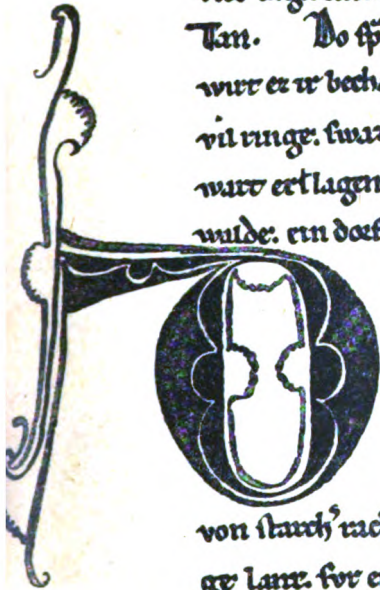 Tan. Do sp
wirt er ir bech
vil ringe. swar
wart erslagen
walde. ein dorf
O
von starch rac
ge lant. fvr e